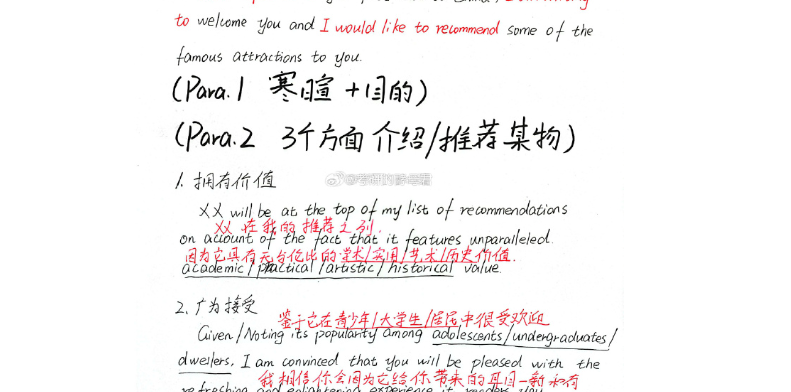 to welcome you and I would like to recommend some of the
famous attractions to you.
(Para.1 寒暄+目的)
(Para.2 3个方面介绍/推荐某物)
1. 拥有价值
XX will be at the top of my list of recommendations
XX 在我的推荐之列.
on account of the fact that it features unparalleled
因为它具有无与伦比的学术/实用/艺术/历史价值.
academic/practical/artistic/historical value.
2. 广为接受
鉴于它在青少年/大学生/居民中很受欢迎
Given/Noting its popularity among adolescents/undergraduates/
dwellers, I am convinced that you will be pleased with the
我相信你会因为它给你带来的耳目一新和
refreshing and enlightening experience it renders you